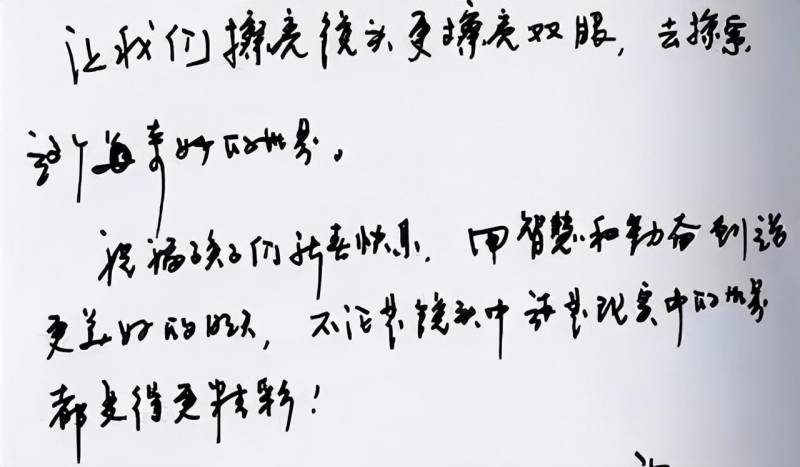 让我们擦亮镜头更擦亮双眼，去探索
这个奇妙的世界。
祝福孩子们新春快乐，用智慧和勤奋创造
更美好的明天，不论是镜头中还是现实中的世界
都变得更精彩！